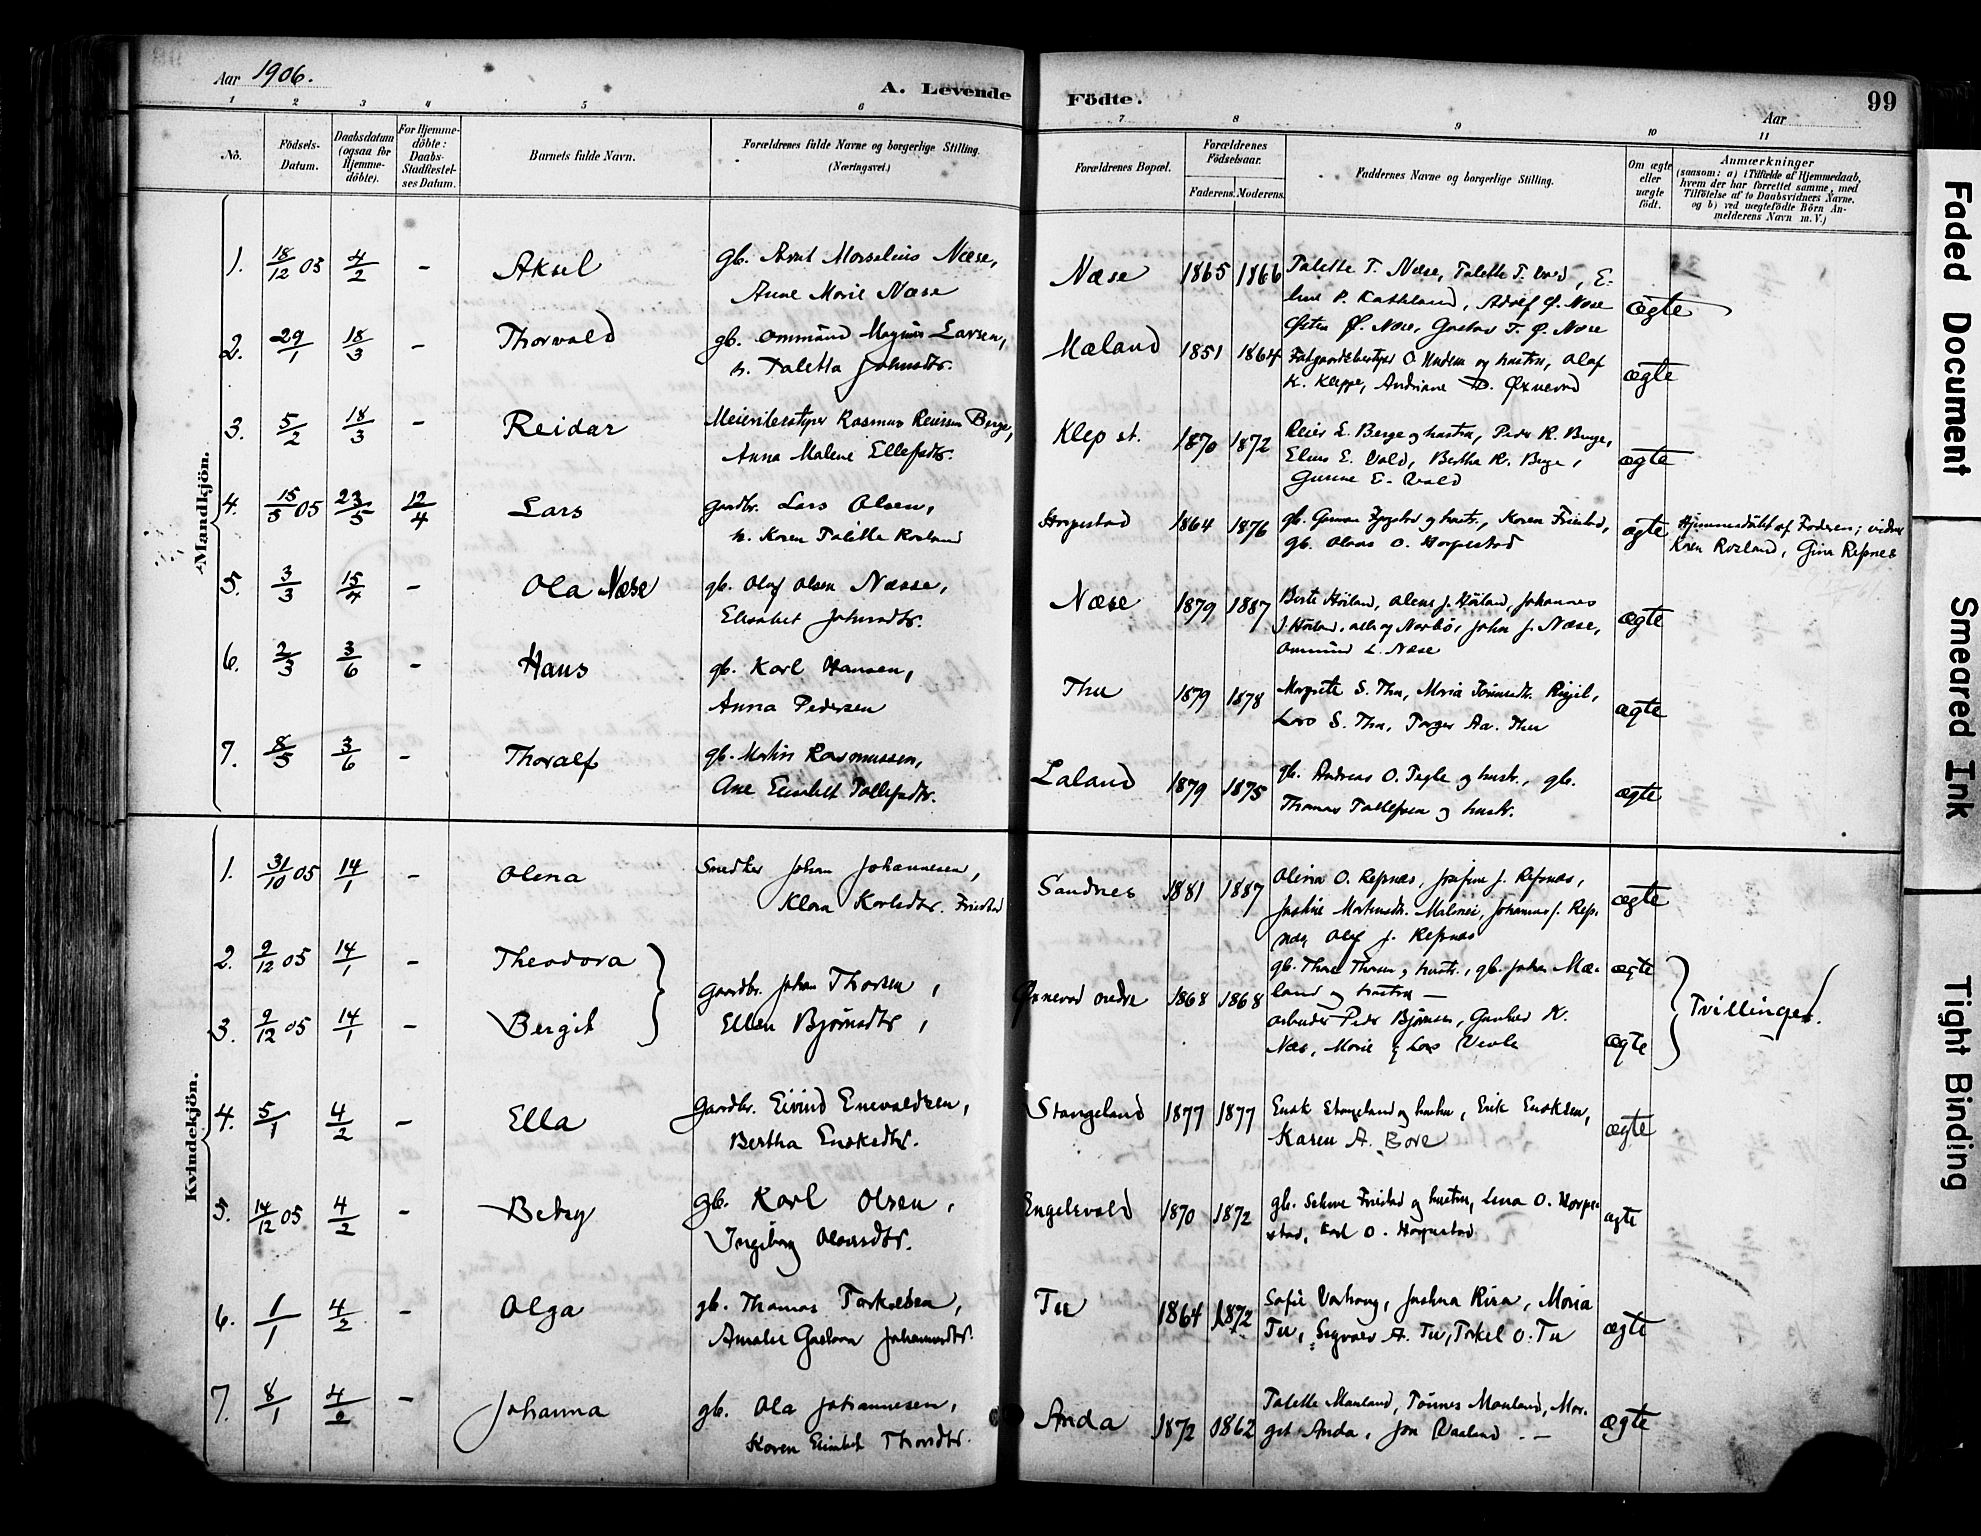 Aar 1906.
A. Levende Födte.
99
Aar
1 2 3 4 5 6 7 8 9 10 11
No.
Födsels-Datum.
Daabsdatum (ogsaa for Hjemme-döbte).
For Hjemme-döbte: Daabs-Stadfæstel-ses Datum.
Barnets fulde Navn.
Forældrenes fulde Navne og borgerlige Stilling. (Næringsvei.)
Forældrenes Bopæl.
Forældrenes Födselsaar.
Faderens. Moderens.
Faddernes Navne og borgerlige Stilling.
Om ægte eller uægte födt.
Anmærkninger
(saasom: a) i Tilfælde af Hjemmedaab, hvem der har forrettet samme, med Tilföielse af to Daabsvidners Navne, og b) ved uægtefödte Börn An-melderens Navn m. V.)
Mandkjön.
1. 18/12 05 4/2 - Aksel
gb. Næse,
Anne Marie Næse
Næse 1865 1866
Talette T. Næse, Talette T. E-
line P. Adolf Ø. Næse
Ø. Næse, Gustav T. Ø. Næse
ægte
2. 29/1 18/3 - Thorvald
gb. Ommund Magnus Larsen,
h. Taletta Johnsdtr.
Mæland 1851 1864
O. og hustru, Olaf
K. Kleppe, Andriane D. Øxnevad
ægte
3. 5/2 18/3 - Reidar
Meieribestyrer Rasmus Reiersen Berge,
Anna Malene Ellefsdtr.
Klep st. 1870 1872
Reier L. Berge og hustru, Peder R. Berge,
E. Vold, Bertha R. Berge,
Gurine E. Vold
ægte
4. 15/3 05 23/5 12/4 Lars
gaardbr. Lars Olsen,
h. Karen Talette Rosland
Horpestad 1864 1876
gb. og hustr., Karen Friestad,
gb. Olaus O. Horpestad
ægte
Hjemmedöbt af Faderen; vidner
Karen Rosland, Gina Refsnes
5. 3/3 15/4 - Ola Næse
gb. Olaf Olsen Næsse,
Elisabet Johnsdtr.
Næse 1879 1887
Berte Höiland, J. Höiland, Johannes
J. Höiland, John J. Næse,
Ommund L. Næse
ægte
6. 2/3 3/6 - Hans
gb. Karl Hansen,
Anna Pedersen
Thu 1879 1878
Margrete S. Thu, Maria
Lars S. Thu, Torger Aa. Thu
ægte
7. 8/5 3/6 - Thoralf
gb. Martin Rasmussen,
Ane Elisabet Tollefsdtr.
Laland 1879 1875
gb. Andreas O. Tegle og hustr., gb.
Thomas Tollefsen og hustr.
ægte
Kvindekjön.
1. 31/10 05 14/1 - Olena
Snedker Johan Johannesen,
Klara Karlsdtr. Friestad
Sandnes 1881 1887
Olina O. Refsnæs, Josefine J. Refsnæs,
Johannes J. Refs-
næs, Olaf J. Refsnæs
ægte
2. 9/12 05 14/1 - Theodora
3. 9/12 05 14/1 - Bergit
Gaardbr. Johan Thorsen,
Ellen Bjørnsdtr,
Øxnevad nedre 1868 1868
gb. Thore Thorsen og hustr., gb. Johan Mæ-
land og hustru —
arbeider Peder Bjørnsen, K.
Næs, Marie og Lars
ægte
ægte
Tvillinger.
4. 5/1 4/2 - Ella
Gaardbr. Eivind Enevaldsen,
Bertha Enoksdtr.
Stangeland 1877 1877
Enok Stangeland og hustru, Erik Enoksen,
Karen A. Bore
ægte
5. 14/12 05 4/2 - Betsy
gb. Karl Olsen,
Ingeborg Olausdtr.
Engelsvold 1870 1872
gb. Friestad og hustru, Lena O. Horpe-
stad, Karl O. Horpestad
ægte
6. 1/1 4/2 - Olga
gb. Thomas Torkelsen,
Amalie Gustava Johannesdtr.
Tu 1864 1872
Sofie Varhoug, Maria
Tu, Sigvald A. Tu, Torkel O. Tu
ægte
7. 8/1 4/2 - Johanna
gb. Ola Johannesen,
Karen Elisabet Thorsdtr.
Anda 1872 1862
Talette Manland, Tönnes Manland, Mar-
get Anda, Jon —
ægte
Faded Document
Smeared Ink
Tight Binding